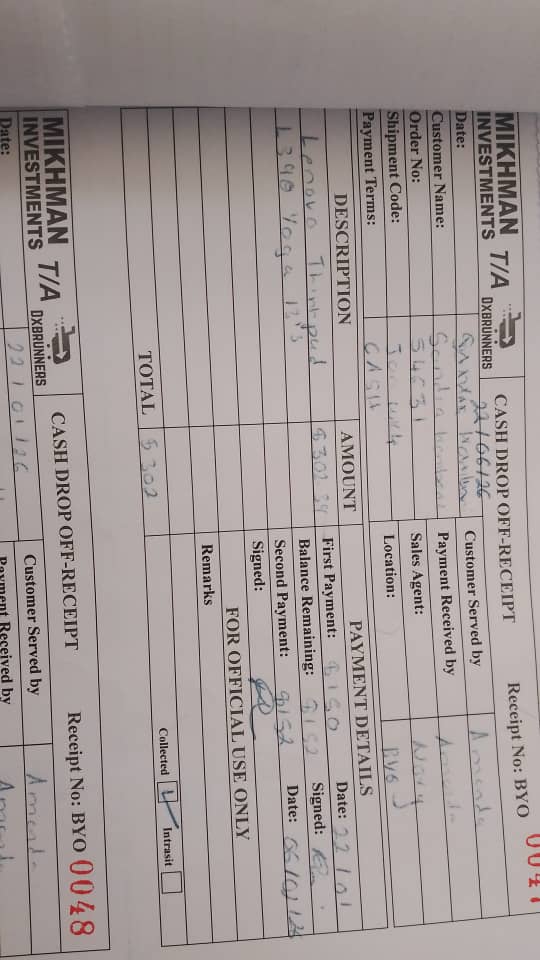 MIKHMAN
INVESTMENTS T/A DXBRUNNERS CASH DROP OFF-RECEIPT Receipt No: BYO
Date: 22/06/26 Customer Served by Amenda
Customer Name: Sandra Payment Received by Amenda
Order No: 54631 Sales Agent:
Shipment Code: Location: BYO
Payment Terms: CASH
DESCRIPTION AMOUNT PAYMENT DETAILS
Lenovo Thinkpad $302.34 First Payment: $150 Date: 22/01
L390 Yoga i3's Balance Remaining: $152 Signed:
Second Payment: $152 Date: 06/02/26
Signed:
FOR OFFICIAL USE ONLY
Remarks
TOTAL $302 Collected Intrasit
MIKHMAN
INVESTMENTS T/A DXBRUNNERS CASH DROP OFF-RECEIPT Receipt No: BYO 0048
Date: 22/01/26 Customer Served by Amenda
Payment Received by